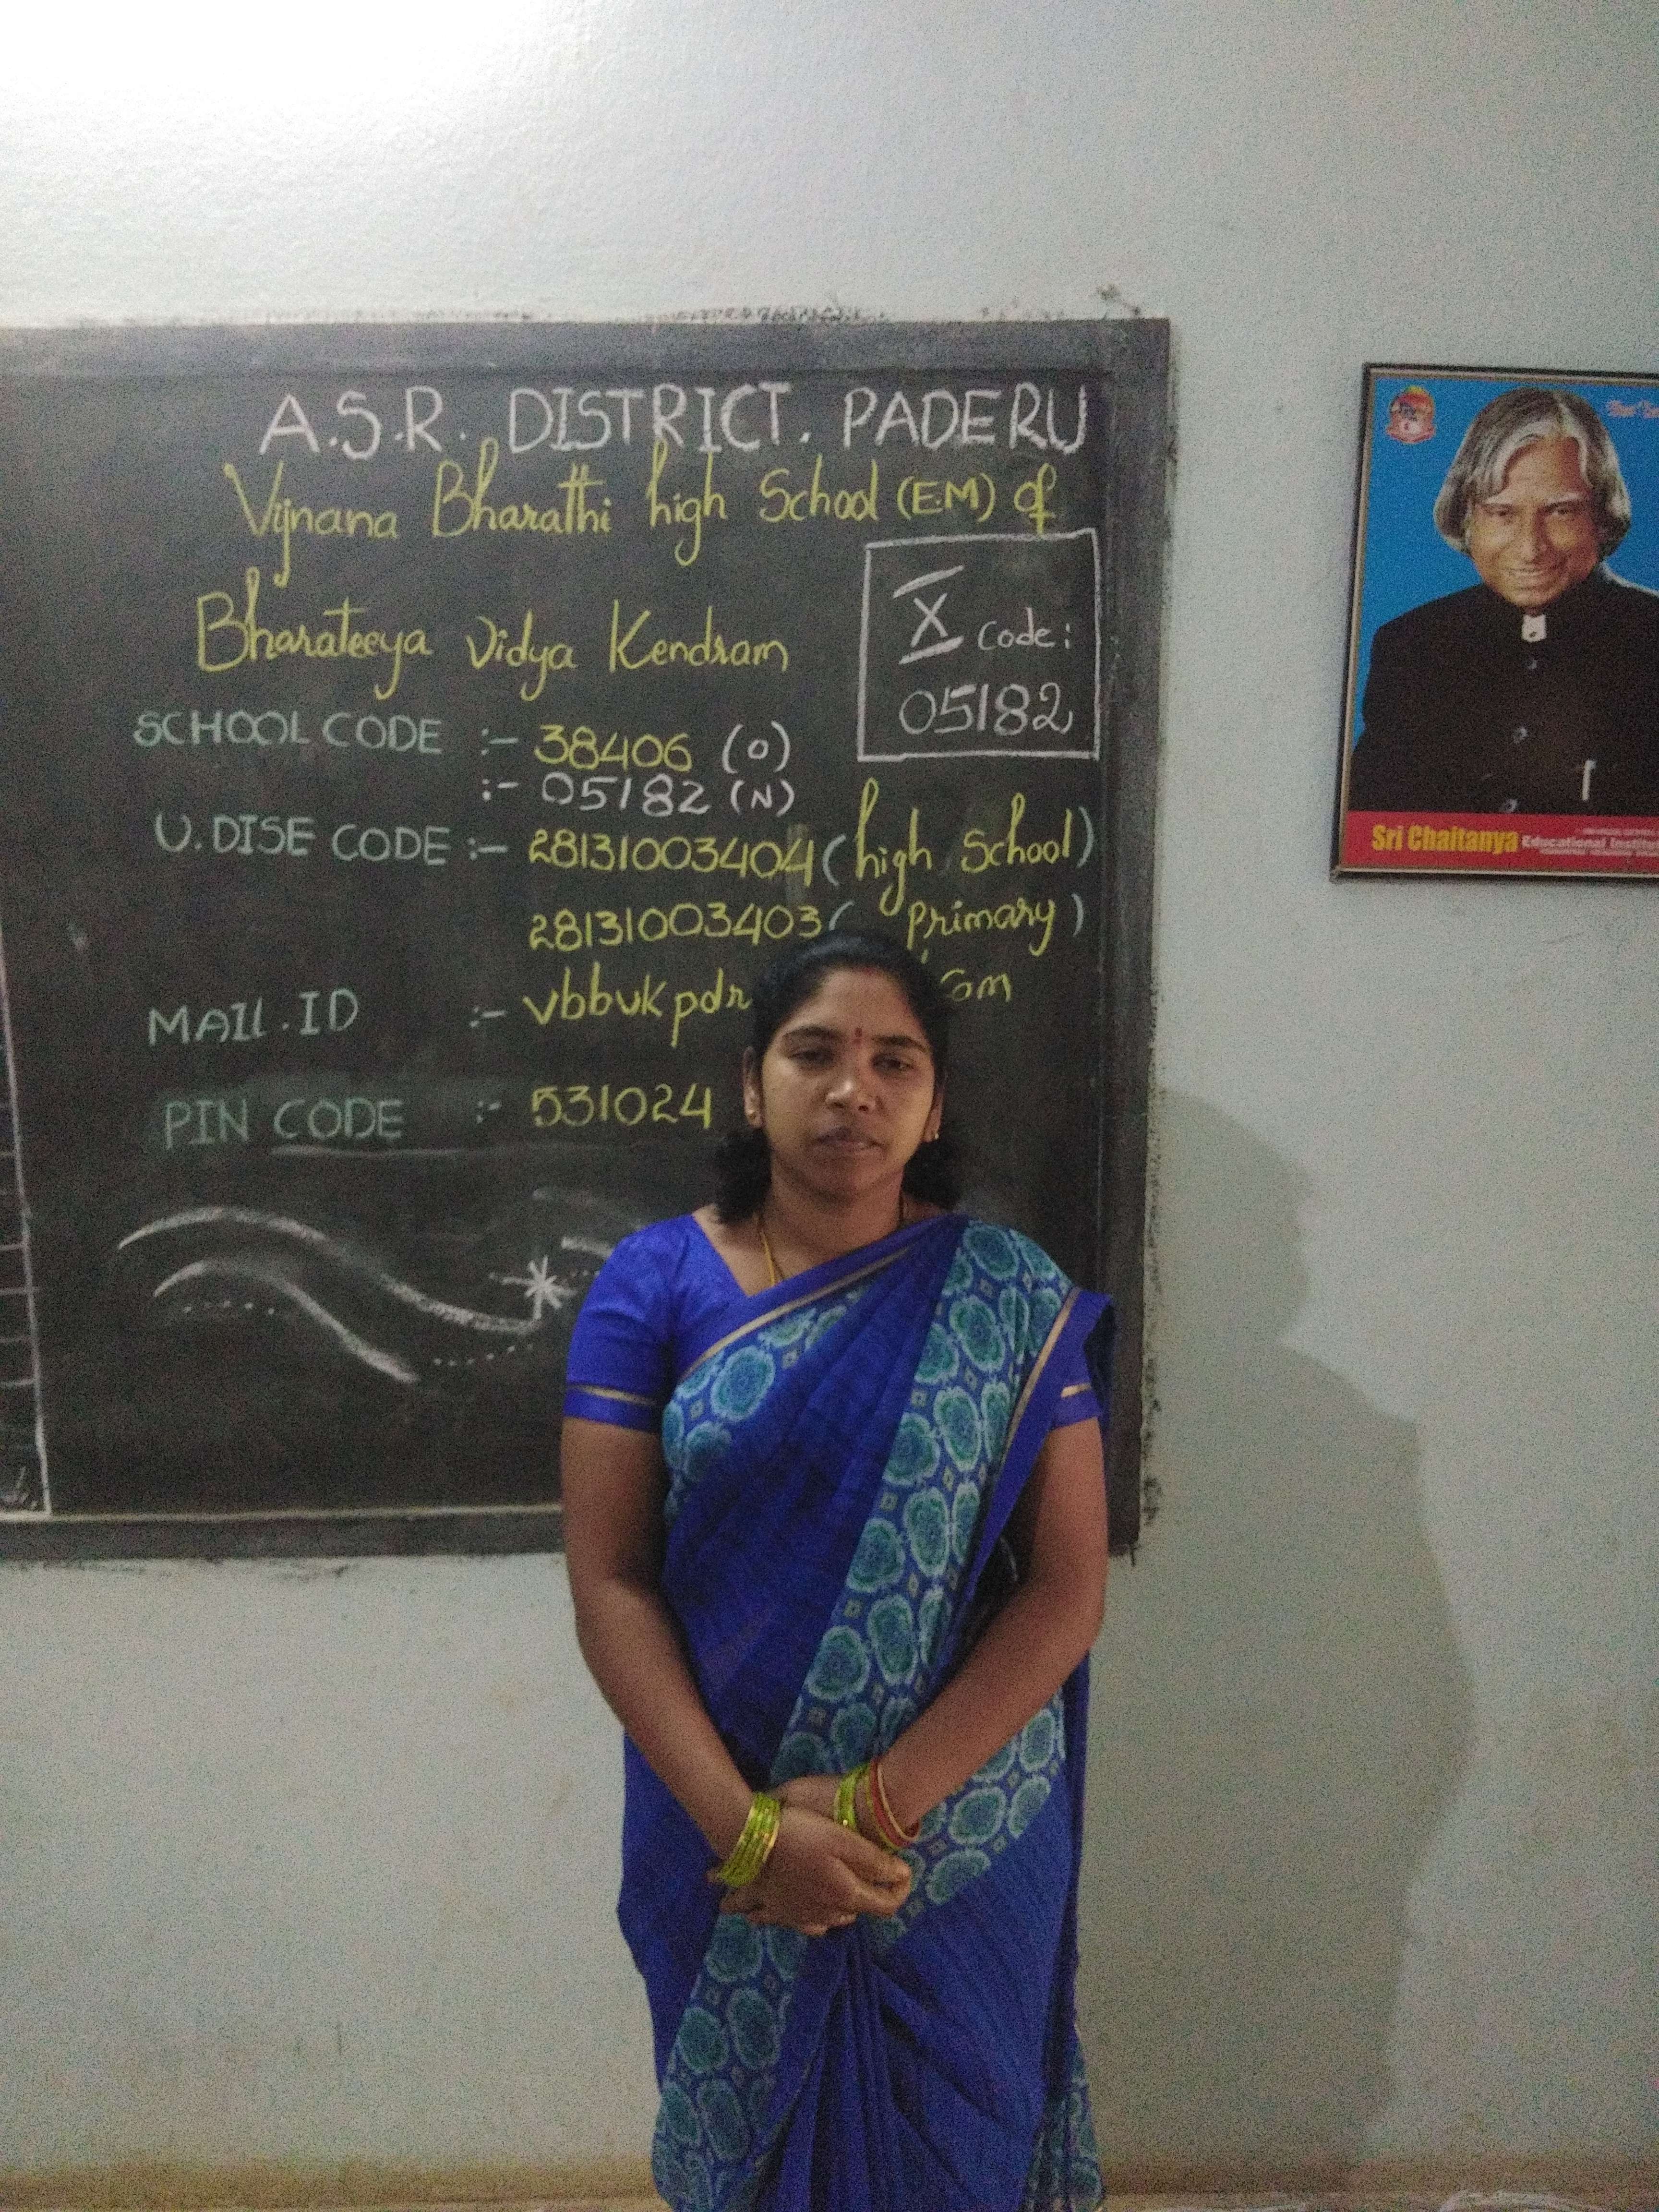 A.S.R. DISTRICT. PADERU
Vijnana Bharathi high School (EM) of
Bharateeya Vidya Kendram
X Code:
05182
SCHOOL CODE :- 38406 (O)
:- 05182 (N)
U.DISE CODE :- 28131003404 (high School)
28131003403 ( Primary)
MAIL.ID :- vbbvkpdr com
PIN CODE :- 531024
Sri Chaitanya Educational